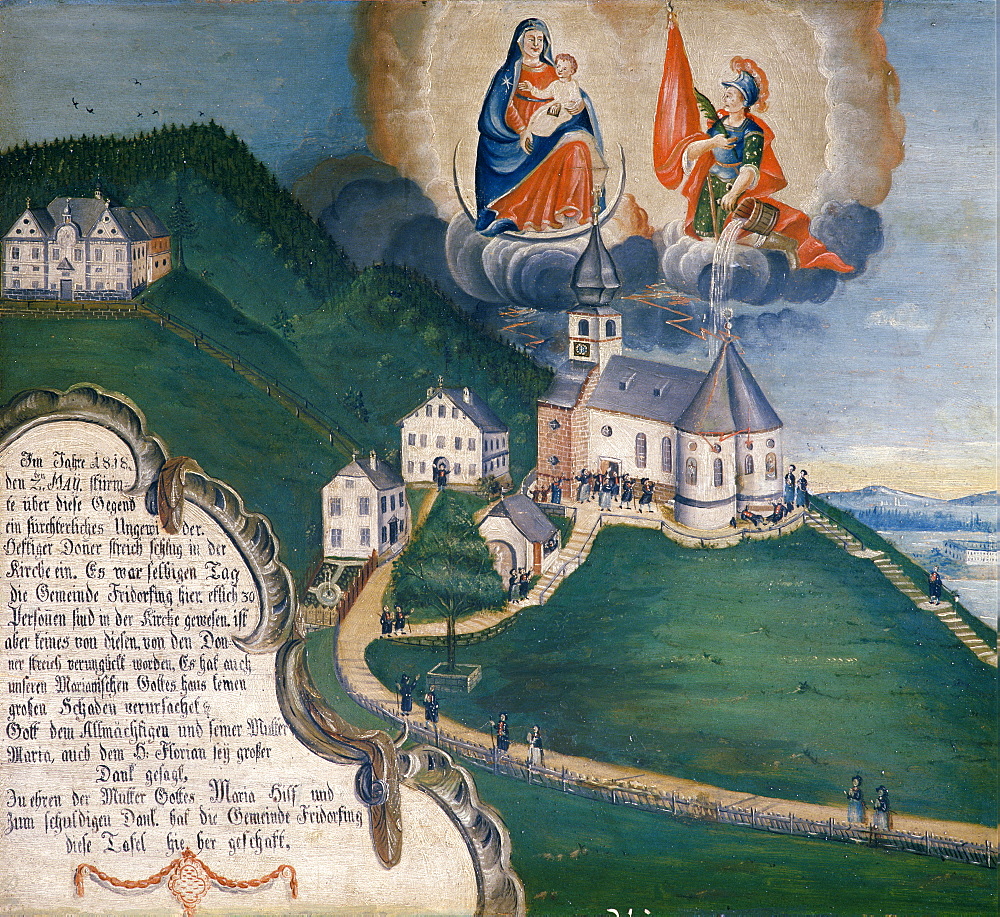 Im Jahre 1818.
den 2ten MAY. stürm-
te über diese Gegend
ein fürchterliches Ungewi der.
Heftiger Doner streich schlug in der
Kirche ein. Es war selbigen Tag
die Gemeinde Fridorfing hier, etlich 30
Persoñen sind in der Kirche gewesen, ist
aber keines von diesen, von den Don-
ner streich verunglückt worden, Es hat auch
unseren Marianischen Gottes haus keinen
großen Schaden verursachet
Gott dem Allmächtigen und seiner Mutter
Maria, auch dem H: Florian sey großer
Dank gesagt,
Zu ehren der Mutter Gottes Maria Hilf und
Zum schuldigen Dank. hat die Gemeinde Fridorfing
diese Tafel hie her geschaft.